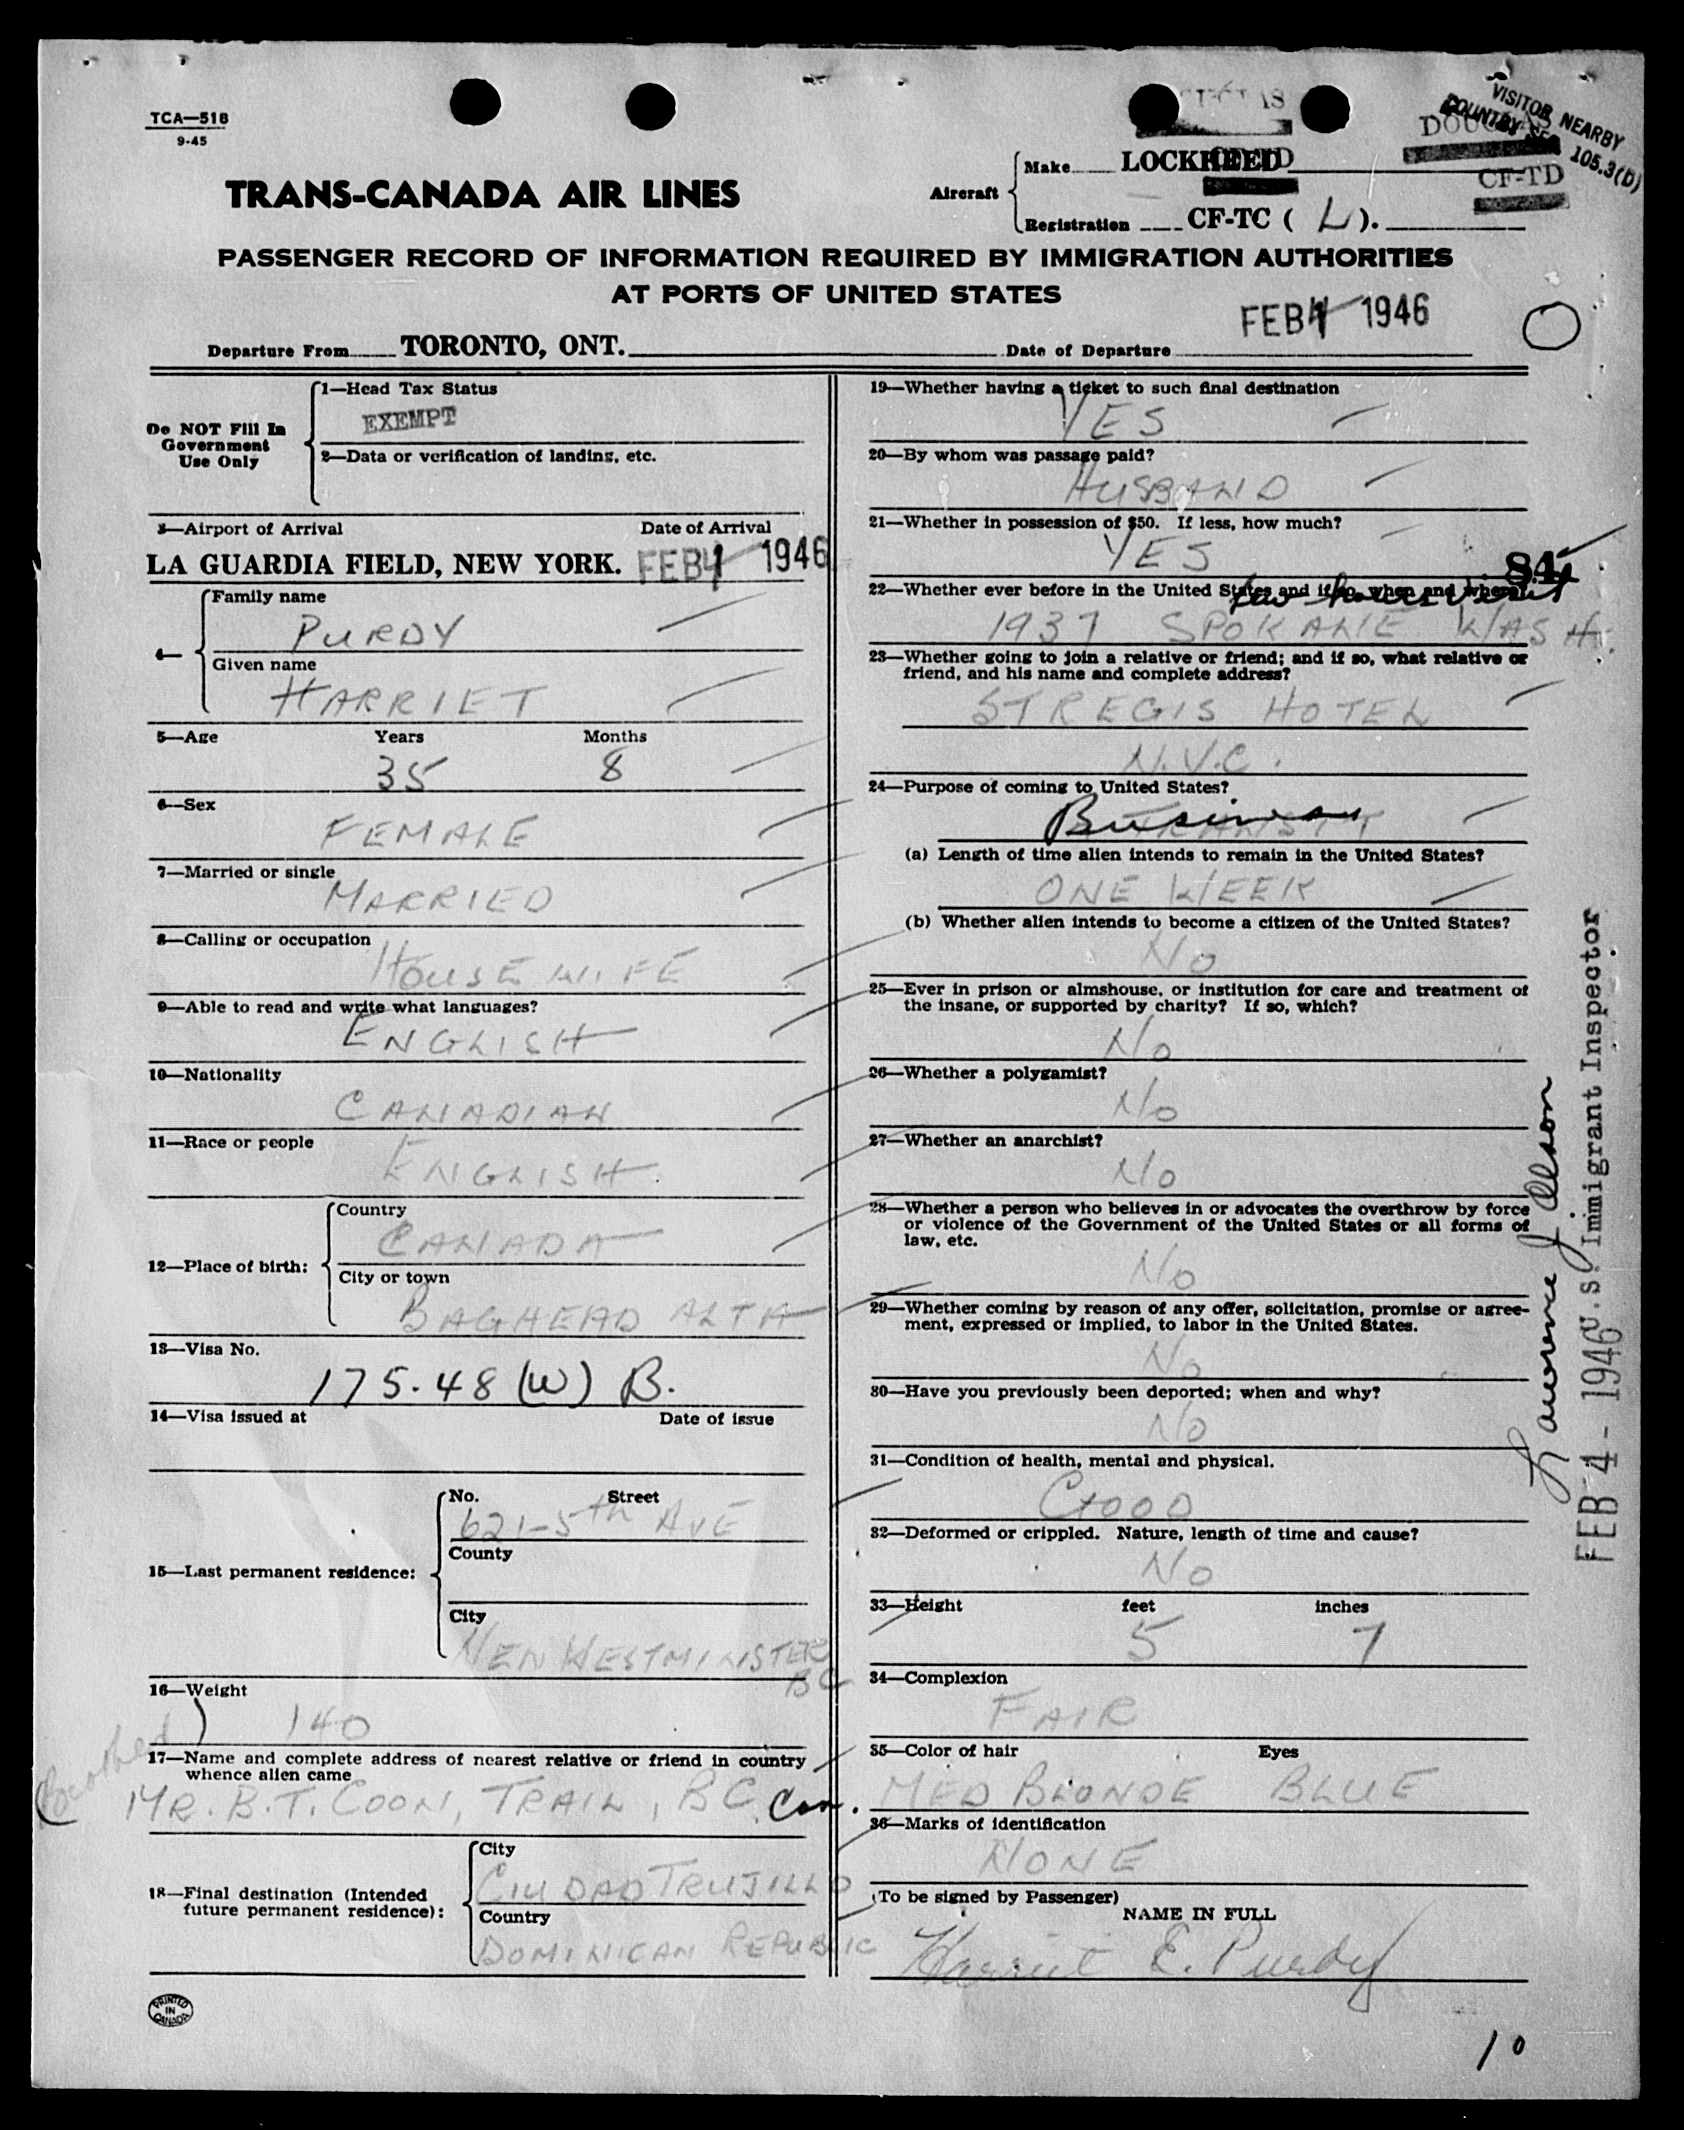 TCA—518
9-45
VISITOR NEARBY
COUNTRY SEC 105.3(D)
DOUGLAS
CF-TD
TRANS-CANADA AIR LINES
Aircraft
Make LOCKHEED
Registration CF-TC ( L ).
PASSENGER RECORD OF INFORMATION REQUIRED BY IMMIGRATION AUTHORITIES
AT PORTS OF UNITED STATES
FEB 4 1946
Departure From TORONTO, ONT. Date of Departure
Do NOT Fill In
Government
Use Only
1—Head Tax Status
EXEMPT
2—Data or verification of landing, etc.
3—Airport of Arrival Date of Arrival
LA GUARDIA FIELD, NEW YORK. FEB 4 1946
4—
Family name
PURDY
Given name
HARRIET
5—Age Years Months
35 8
6—Sex
FEMALE
7—Married or single
MARRIED
8—Calling or occupation
HOUSEWIFE
9—Able to read and write what languages?
ENGLISH
10—Nationality
CANADIAN
11—Race or people
ENGLISH
12—Place of birth:
Country
CANADA
City or town
BAGHEAD ALTA
13—Visa No.
175.48 (W) B.
14—Visa issued at Date of issue
15—Last permanent residence:
No. Street
621-5th AVE
County
City
NEW WESTMINISTER
BC
16—Weight
140
17—Name and complete address of nearest relative or friend in country
whence alien came
(brother)
MR. B.T. COON, TRAIL, BC. Can.
18—Final destination (Intended
future permanent residence):
City
CIUDAD TRUJILLO
Country
DOMINICAN REPUBLIC
PRINTED
IN
CANADA
19—Whether having a ticket to such final destination
YES
20—By whom was passage paid?
HUSBAND
21—Whether in possession of $50. If less, how much?
YES
84
22—Whether ever before in the United States and if so, when and where?
few hours visit
1937 SPOKANE WASH.
23—Whether going to join a relative or friend; and if so, what relative or
friend, and his name and complete address?
ST REGIS HOTEL
N.Y.C.
24—Purpose of coming to United States?
Business
(a) Length of time alien intends to remain in the United States?
ONE WEEK
(b) Whether alien intends to become a citizen of the United States?
NO
25—Ever in prison or almshouse, or institution for care and treatment of
the insane, or supported by charity? If so, which?
NO
26—Whether a polygamist?
NO
27—Whether an anarchist?
NO
28—Whether a person who believes in or advocates the overthrow by force
or violence of the Government of the United States or all forms of
law, etc.
NO
29—Whether coming by reason of any offer, solicitation, promise or agree-
ment, expressed or implied, to labor in the United States.
NO
30—Have you previously been deported; when and why?
NO
31—Condition of health, mental and physical.
GOOD
32—Deformed or crippled. Nature, length of time and cause?
NO
33—Height feet inches
5 7
34—Complexion
FAIR
35—Color of hair Eyes
MED BLONDE BLUE
36—Marks of identification
NONE
(To be signed by Passenger)
NAME IN FULL
Harriet E. Purdy
10
Lawrence J Olson
U.S. Immigrant Inspector
FEB 4 - 1946